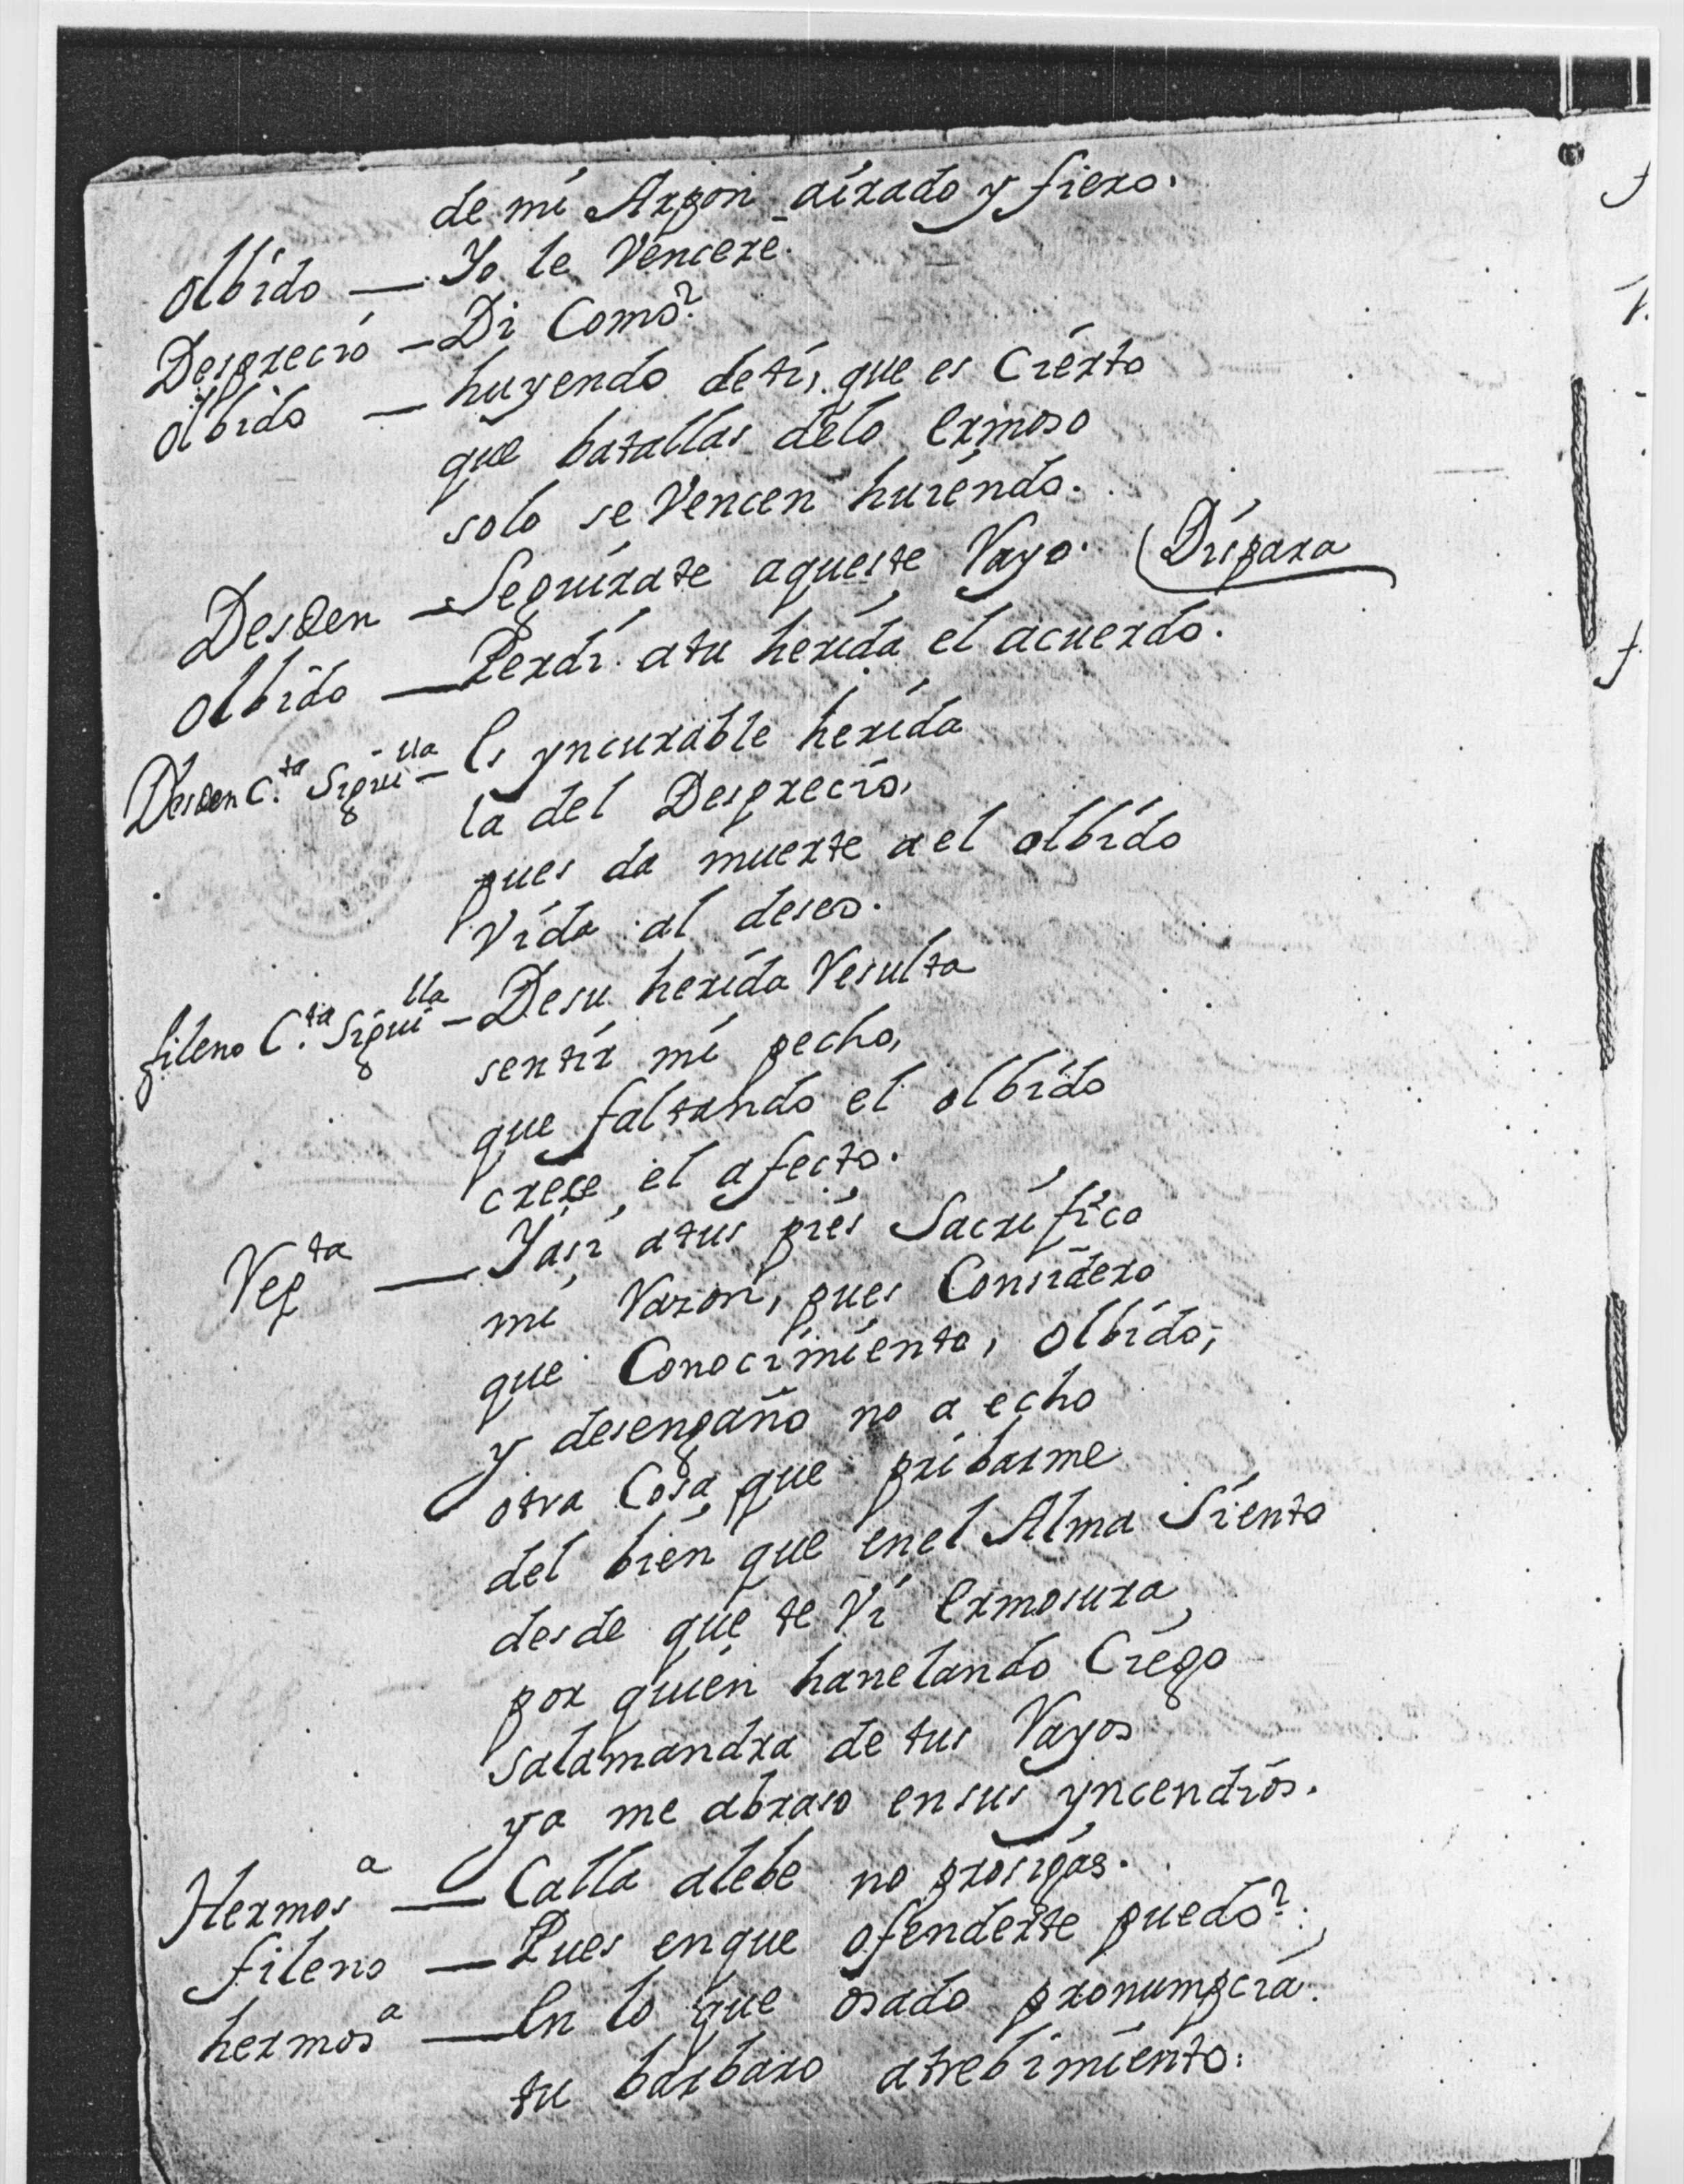 de mi Arpon airado y fiero.
olbido — Yo le Vencere.
Desprecio — Di Como?
olbido — huyendo deti, que es Cierto
que batallas delo ermoso
solo se Vencen huiendo.
Desden — Seguirate aqueste Rayo. (Dispara
olbido — Perdi atu herida el acuerdo.
Desden C.ta Sigui-lla — Es yncurable herida
la del Desprecio,
pues da muerte a el olbido
Vida al deseo.
fileno C.ta Sigui-lla — Desu herida Resulta
sentir mi pecho,
que faltando el olbido
crece el afecto.
Rep.ta — Yasi atus pies Sacrifico
mi Razon, pues Considero
que Conocimiento, olbido,
y desengaño no a echo
otra Cosa que pribarme
del bien que enel Alma Siento
desde que te Vi ermosura,
por quien hanelando Ciego
salamandra de tus Rayos
ya me abraso ensus yncendios.
Hermosa — Calla alebe no prosigas.
fileno — Pues enque ofenderte puedo?
hermosa — En lo que osado pronumpcia
tu barbaro atrebimiento: